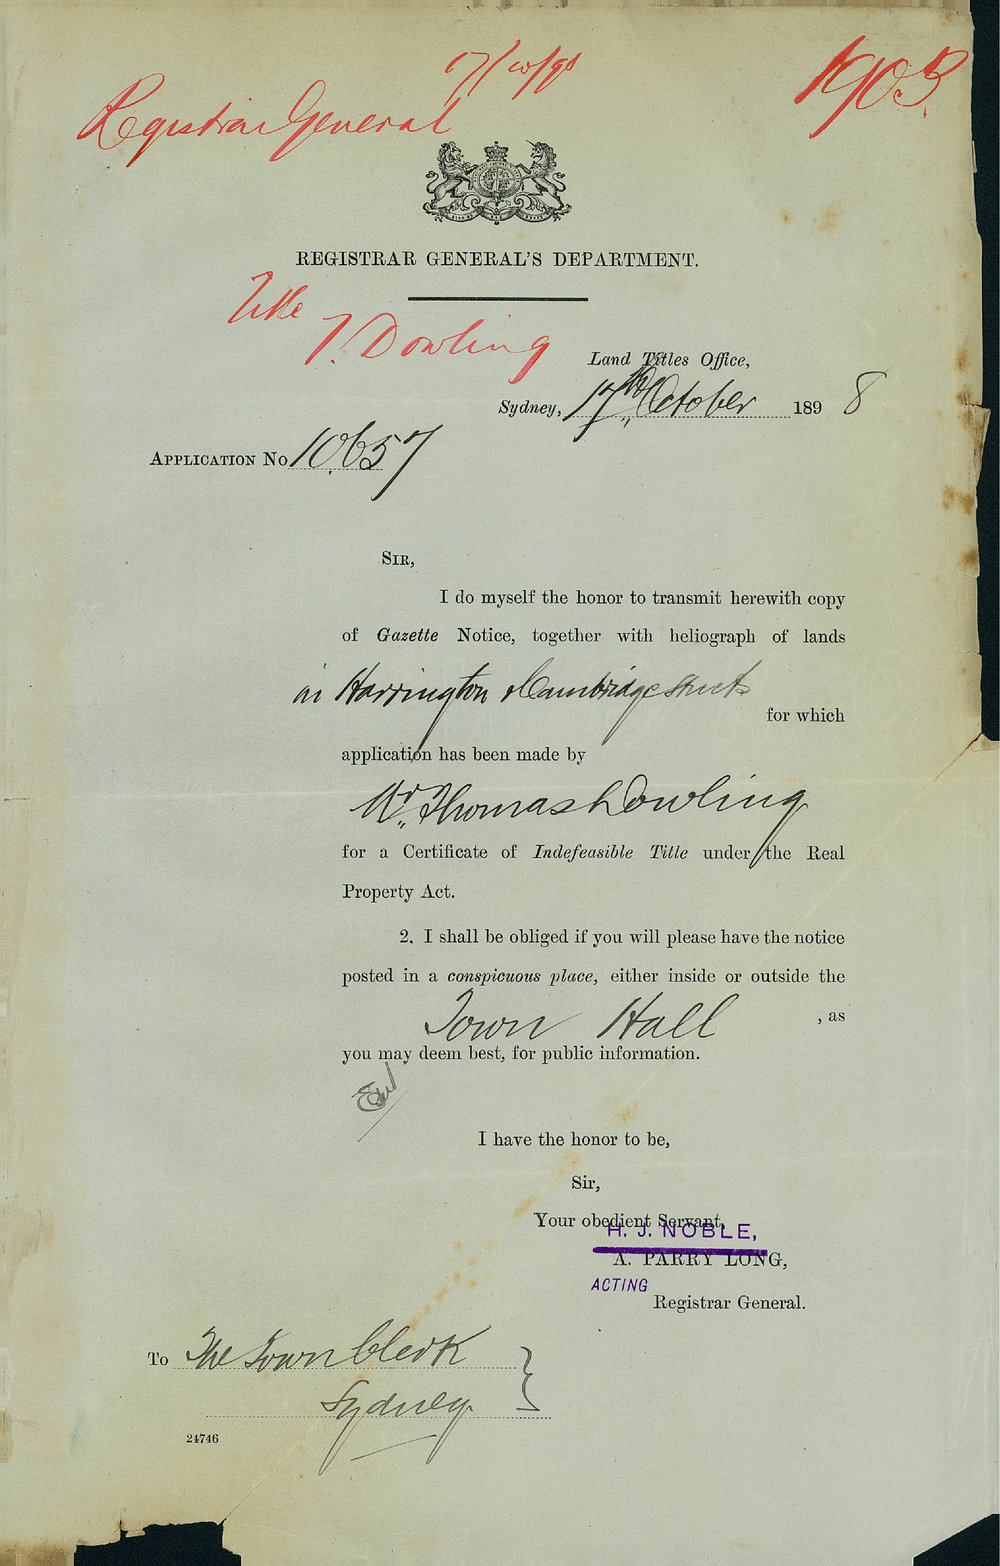 17/10/98
1903
Registrar General
REGISTRAR GENERAL'S DEPARTMENT.
Title
T. Dowling
Land Titles Office,
Sydney, 17th October 1898
APPLICATION No 10657
SIR,
I do myself the honor to transmit herewith copy
of Gazette Notice, together with heliograph of lands
in Harrington & Cambridge Streets
for which
application has been made by
Mr. Thomas Dowling
for a Certificate of Indefeasible Title under the Real
Property Act.
2. I shall be obliged if you will please have the notice
posted in a conspicuous place, either inside or outside the
Town Hall , as
you may deem best, for public information.
I have the honor to be,
Sir,
Your obedient Servant,
H. J. NOBLE,
A. PARRY LONG,
ACTING
Registrar General.
To The Town Clerk
Sydney
24746